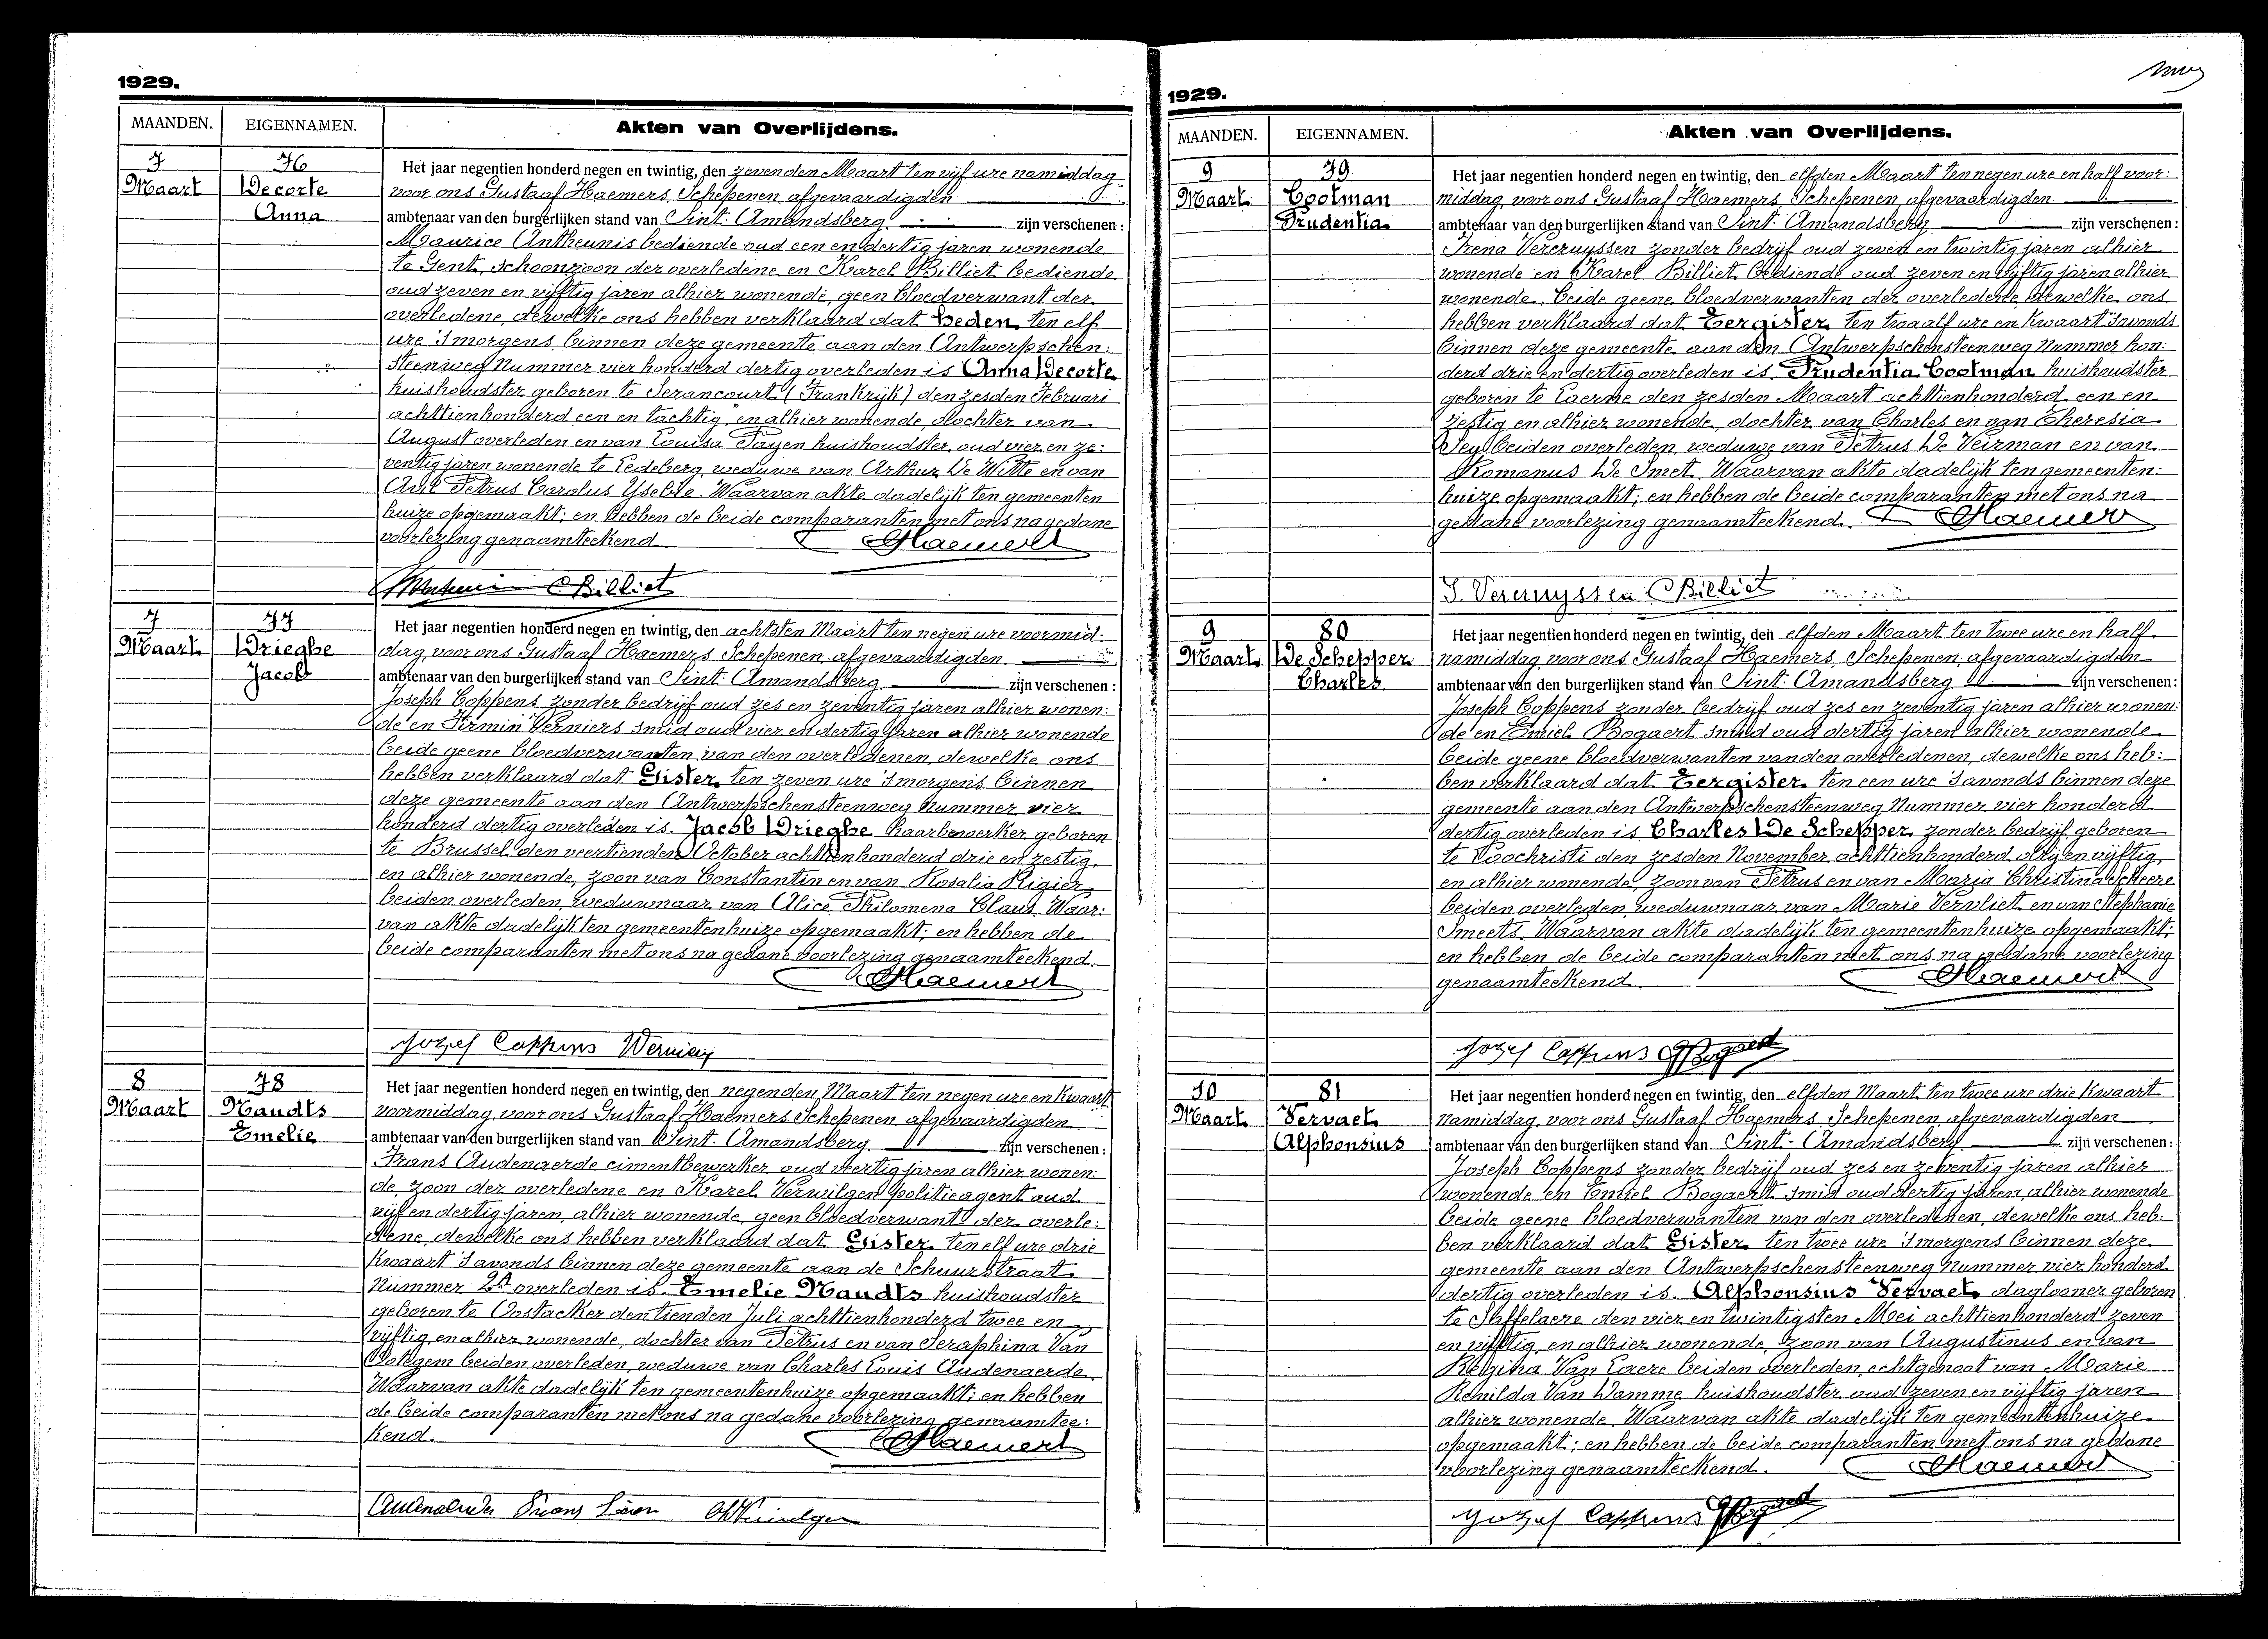 1929.
MAANDEN. EIGENNAMEN. Akten van Overlijdens.
7 76
Maart Decorte
Anna
Het jaar negentien honderd negen en twintig, den zevenden Maart ten vijf ure namiddag
voor ons Gustaaf Haemers, Schepenen, afgevaardigden
ambtenaar van den burgerlijken stand van Sint-Amandsberg zijn verschenen:
Maurice Antheunis bediende oud een en dertig jaren wonende
te Gent, schoonzoon der overledene en Karel Billiet bediende
oud zeven en vijftig jaren alhier wonende, geen bloedverwant der
overledene, dewelke ons hebben verklaard dat heden ten elf
ure 's morgens binnen deze gemeente aan den Antwerpschen:
steenweg Nummer vier honderd dertig overleden is Anna Decorte
huishoudster geboren te Serancourt (Frankrijk) den zesden Februari
achttienhonderd een en tachtig, en alhier wonende, dochter van
August overleden en van Louisa Payen huishoudster, oud vier en ze:
ventig jaren wonende te Ledeberg, weduwe van Arthur De Witte en van
Petrus Carolus Waarvan akte dadelijk ten gemeenten
huize opgemaakt; en hebben de beide comparanten met ons na gedane
voorlezing genaamteekend. Haemers
Billiet
7 77
Maart Drieghe
Jacob
Het jaar negentien honderd negen en twintig, den achtsten Maart ten negen ure voormid:
dag, voor ons Gustaaf Haemers Schepenen, afgevaardigden
ambtenaar van den burgerlijken stand van Sint-Amandsberg zijn verschenen:
Joseph Coppens zonder bedrijf oud zes en zeventig jaren alhier wonen:
de en Firmin Verniers smid oud vier en dertig jaren alhier wonende
beide geene bloedverwanten van den overledenen, dewelke ons
hebben verklaard dat Gister ten zeven ure 's morgens binnen
deze gemeente aan den Antwerpschensteenweg Nummer vier
honderd dertig overleden is Jacob Drieghe haarbewerker geboren
te Brussel den veertienden October achttienhonderd drie en zestig,
en alhier wonende, zoon van Constantin en van Rosalia Rigier
beiden overleden, weduwnaar van Alice Philomena Claus. Waar:
van akte dadelijk ten gemeentenhuize opgemaakt; en hebben de
beide comparanten met ons na gedane voorlezing genaamteekend.
Haemers
Jozef Coppens Verniers
8 78
Maart Naudts
Emelie
Het jaar negentien honderd negen en twintig, den negenden Maart ten negen ure en kwaart
voormiddag, voor ons Gustaaf Haemers Schepenen, afgevaardigden
ambtenaar van den burgerlijken stand van Sint-Amandsberg zijn verschenen:
Frans Audenaerde cimentbewerker oud veertig jaren alhier wonen:
de, zoon der overledene en Karel Verwilgen politieagent oud
vijf en dertig jaren, alhier wonende, geen bloedverwant der overle:
dene, dewelke ons hebben verklaard dat Gister ten elf ure drie
kwaart 's avonds binnen deze gemeente aan de Schuurstraat
Nummer overleden is Emelie Naudts huishoudster
geboren te Oostacker den tienden Juli achttienhonderd twee en
vijftig, en alhier wonende, dochter van Petrus en van Seraphina Van
Potegem beiden overleden, weduwe van Charles Louis Audenaerde.
Waarvan akte dadelijk ten gemeentenhuize opgemaakt; en hebben
de beide comparanten met ons na gedane voorlezing genaamtee:
kend. Haemers
Frans
1929.
MAANDEN. EIGENNAMEN. Akten van Overlijdens.
9 79
Maart Cootman
Prudentia
Het jaar negentien honderd negen en twintig, den elfden Maart ten negen ure en half voor:
middag, voor ons Gustaaf Haemers, Schepenen, afgevaardigden
ambtenaar van den burgerlijken stand van Sint-Amandsberg zijn verschenen:
Irena Vercruyssen zonder bedrijf oud zeven en twintig jaren alhier
wonende en Karel Billiet bediende oud zeven en vijftig jaren alhier
wonende, beide geene bloedverwanten der overledene, dewelke ons
hebben verklaard dat Eergister ten twaalf ure en kwaart 's avonds
binnen deze gemeente aan den Antwerpschensteenweg Nummer hon:
derd drie en dertig overleden is Prudentia Cootman huishoudster
geboren te Laerne den zesden Maart achttienhonderd een en
zestig en alhier wonende, dochter van Charles en van Theresia
beiden overleden, weduwe van Petrus De Veirman en van
Romanus De Smet. Waarvan akte dadelijk ten gemeenten:
huize opgemaakt; en hebben de beide comparanten met ons na
gedane voorlezing genaamteekend. Haemers
I. Vercruyssen Billiet
9 80
Maart De Schepper
Charles
Het jaar negentien honderd negen en twintig, den elfden Maart ten twee ure en half
namiddag voor ons Gustaaf Haemers, Schepenen, afgevaardigden
ambtenaar van den burgerlijken stand van Sint-Amandsberg zijn verschenen:
Joseph Coppens zonder bedrijf oud zes en zeventig jaren alhier wonen:
de en Emiel Bogaert smid oud dertig jaren alhier wonende
beide geene bloedverwanten van den overledenen, dewelke ons heb:
ben verklaard dat Eergister ten een ure 's avonds binnen deze
gemeente aan den Antwerpschensteenweg Nummer vier honderd
dertig overleden is Charles De Schepper zonder bedrijf geboren
te Loochristi den zesden November achttienhonderd drij en vijftig,
en alhier wonende, zoon van Petrus en van Maria Christina Scheere
beiden overleden, weduwnaar van Marie Vervliet en van Stephanie
Smeets. Waarvan akte dadelijk ten gemeentenhuize opgemaakt;
en hebben de beide comparanten met ons na gedane voorlezing
genaamteekend. Haemers
Jozef Coppens Bogaert
10 81
Maart Vervaet
Alphonsius
Het jaar negentien honderd negen en twintig, den elfden Maart ten twee ure drie kwaart
namiddag, voor ons Gustaaf Haemers, Schepenen, afgevaardigden
ambtenaar van den burgerlijken stand van Sint-Amandsberg zijn verschenen:
Joseph Coppens zonder bedrijf oud zes en zeventig jaren alhier
wonende en Emiel Bogaert smid oud dertig jaren, alhier wonende
beide geene bloedverwanten van den overledenen, dewelke ons heb:
ben verklaard dat Gister ten twee ure 's morgens binnen deze
gemeente aan den Antwerpschensteenweg Nummer vier honderd
dertig overleden is Alphonsius Vervaet daglooner geboren
te Saffelaere den vier en twintigsten Mei achttienhonderd zeven
en vijftig, en alhier wonende, zoon van Augustinus en van
Regina Van Laere beiden overleden, echtgenoot van Marie
Renilda Van Damme huishoudster oud zeven en vijftig jaren
alhier wonende. Waarvan akte dadelijk ten gemeentenhuize
opgemaakt; en hebben de beide comparanten met ons na gedane
voorlezing genaamteekend. Haemers
Jozef Coppens Bogaert